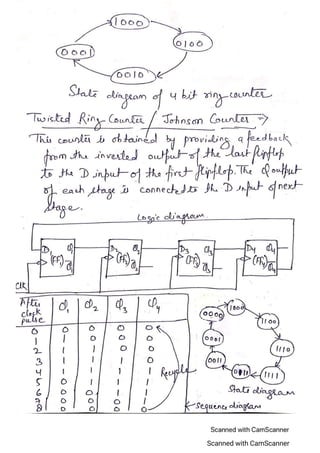 1000
0100
0001
0010
State diagram of 4 bit ring counter
Twisted Ring Counter / Johnson Counter →
This counter is obtained by providing a feedback
from the inverted output of the last flipflop
to the D input of the first flipflop. The Q output
of each stage is connected to the D input of next
stage.
Logic diagram
D1 Q1 D2 Q2 D3 Q3 D4 Q4
(FF1) (FF2) (FF3) (FF4)
Clk
After clock pulse Q1 Q2 Q3 Q4
0 0 0 0 0
1 1 0 0 0
2 1 1 0 0
3 1 1 1 0
4 1 1 1 1
5 0 1 1 1
6 0 0 1 1
7 0 0 0 1
8 0 0 0 0
Recycle
Sequence diagram
0000
1000
1100
1110
1111
0111
0011
0001
State diagram
Scanned with CamScanner
Scanned with CamScanner